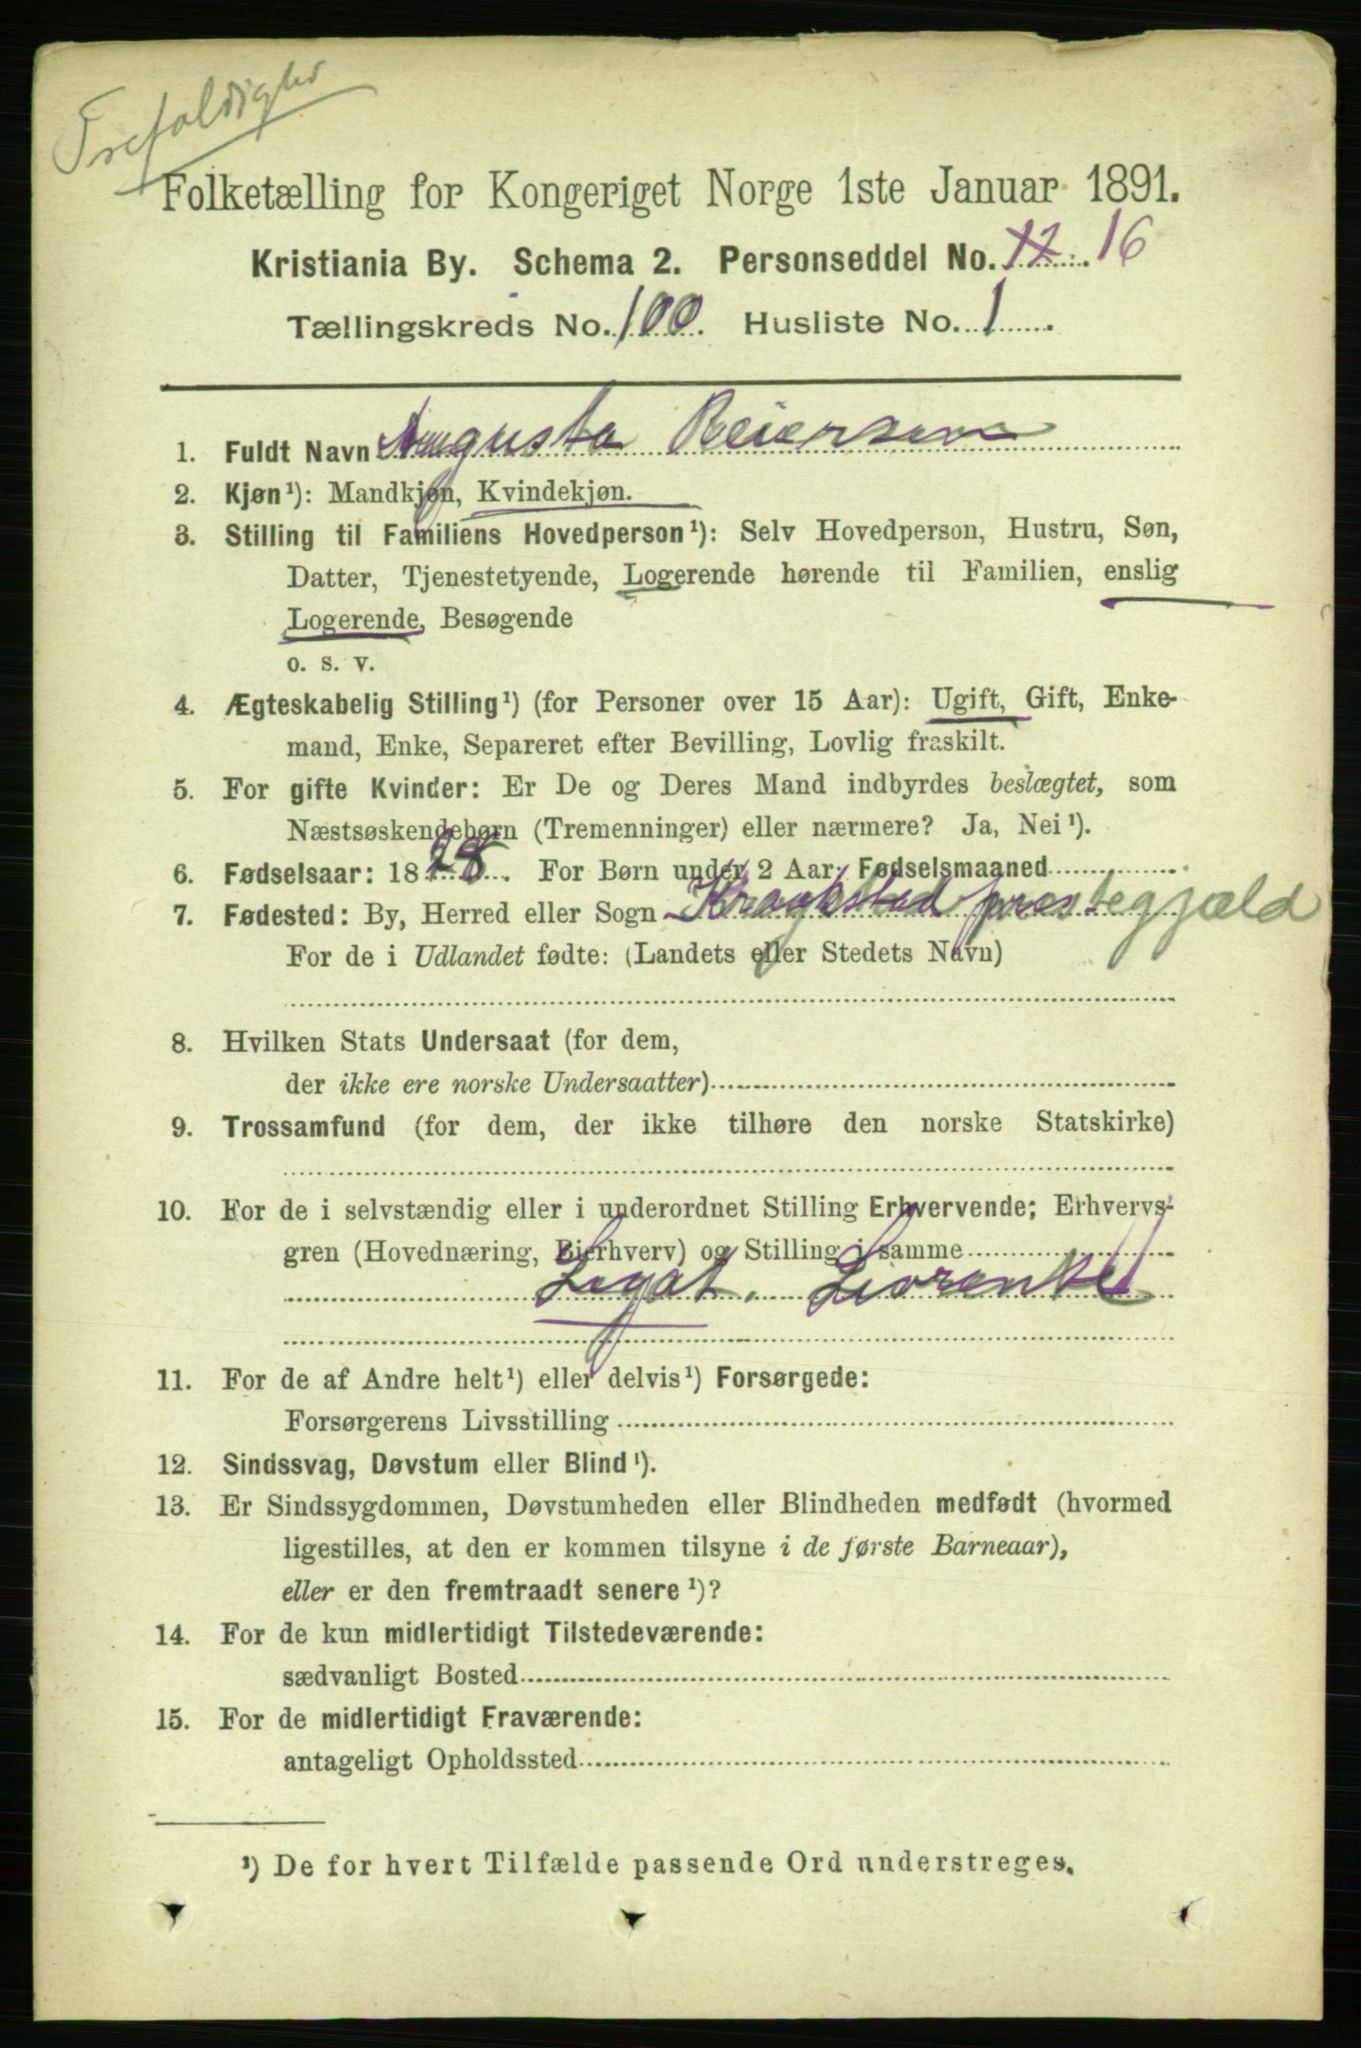 Trefoldighe
Folketælling for Kongeriget Norge 1ste Januar 1891.
Kristiania By. Schema 2. Personseddel No. 12. 16
Tællingskreds No. 100. Husliste No. 1.
1. Fuldt Navn Augusta Reiersen
2. Kjøn¹): Mandkjøn, Kvindekjøn.
3. Stilling til Familiens Hovedperson¹): Selv Hovedperson, Hustru, Søn,
Datter, Tjenestetyende, Logerende hørende til Familien, enslig
Logerende, Besøgende
o. s. v.
4. Ægteskabelig Stilling¹) (for Personer over 15 Aar): Ugift, Gift, Enke-
mand, Enke, Separeret efter Bevilling, Lovlig fraskilt.
5. For gifte Kvinder: Er De og Deres Mand indbyrdes beslægtet, som
Næstsøskendebørn (Tremenninger) eller nærmere? Ja, Nei¹).
6. Fødselsaar: 1828. For Børn under 2 Aar: Fødselsmaaned
7. Fødested: By, Herred eller Sogn Kraakstad prestegjæld
For de i Udlandet fødte: (Landets eller Stedets Navn)
8. Hvilken Stats Undersaat (for dem,
der ikke ere norske Undersaatter)
9. Trossamfund (for dem, der ikke tilhøre den norske Statskirke)
10. For de i selvstændig eller i underordnet Stilling Erhvervende; Erhvervs-
gren (Hovednæring, Bierhverv) og Stilling i samme
Legat. Livrente
11. For de af Andre helt¹) eller delvis¹) Forsørgede:
Forsørgerens Livsstilling
12. Sindssvag, Døvstum eller Blind¹).
13. Er Sindssygdommen, Døvstumheden eller Blindheden medfødt (hvormed
ligestilles, at den er kommen tilsyne i de første Barneaar),
eller er den fremtraadt senere¹)?
14. For de kun midlertidigt Tilstedeværende:
sædvanligt Bosted
15. For de midlertidigt Fraværende:
antageligt Opholdssted
¹) De for hvert Tilfælde passende Ord understreges.